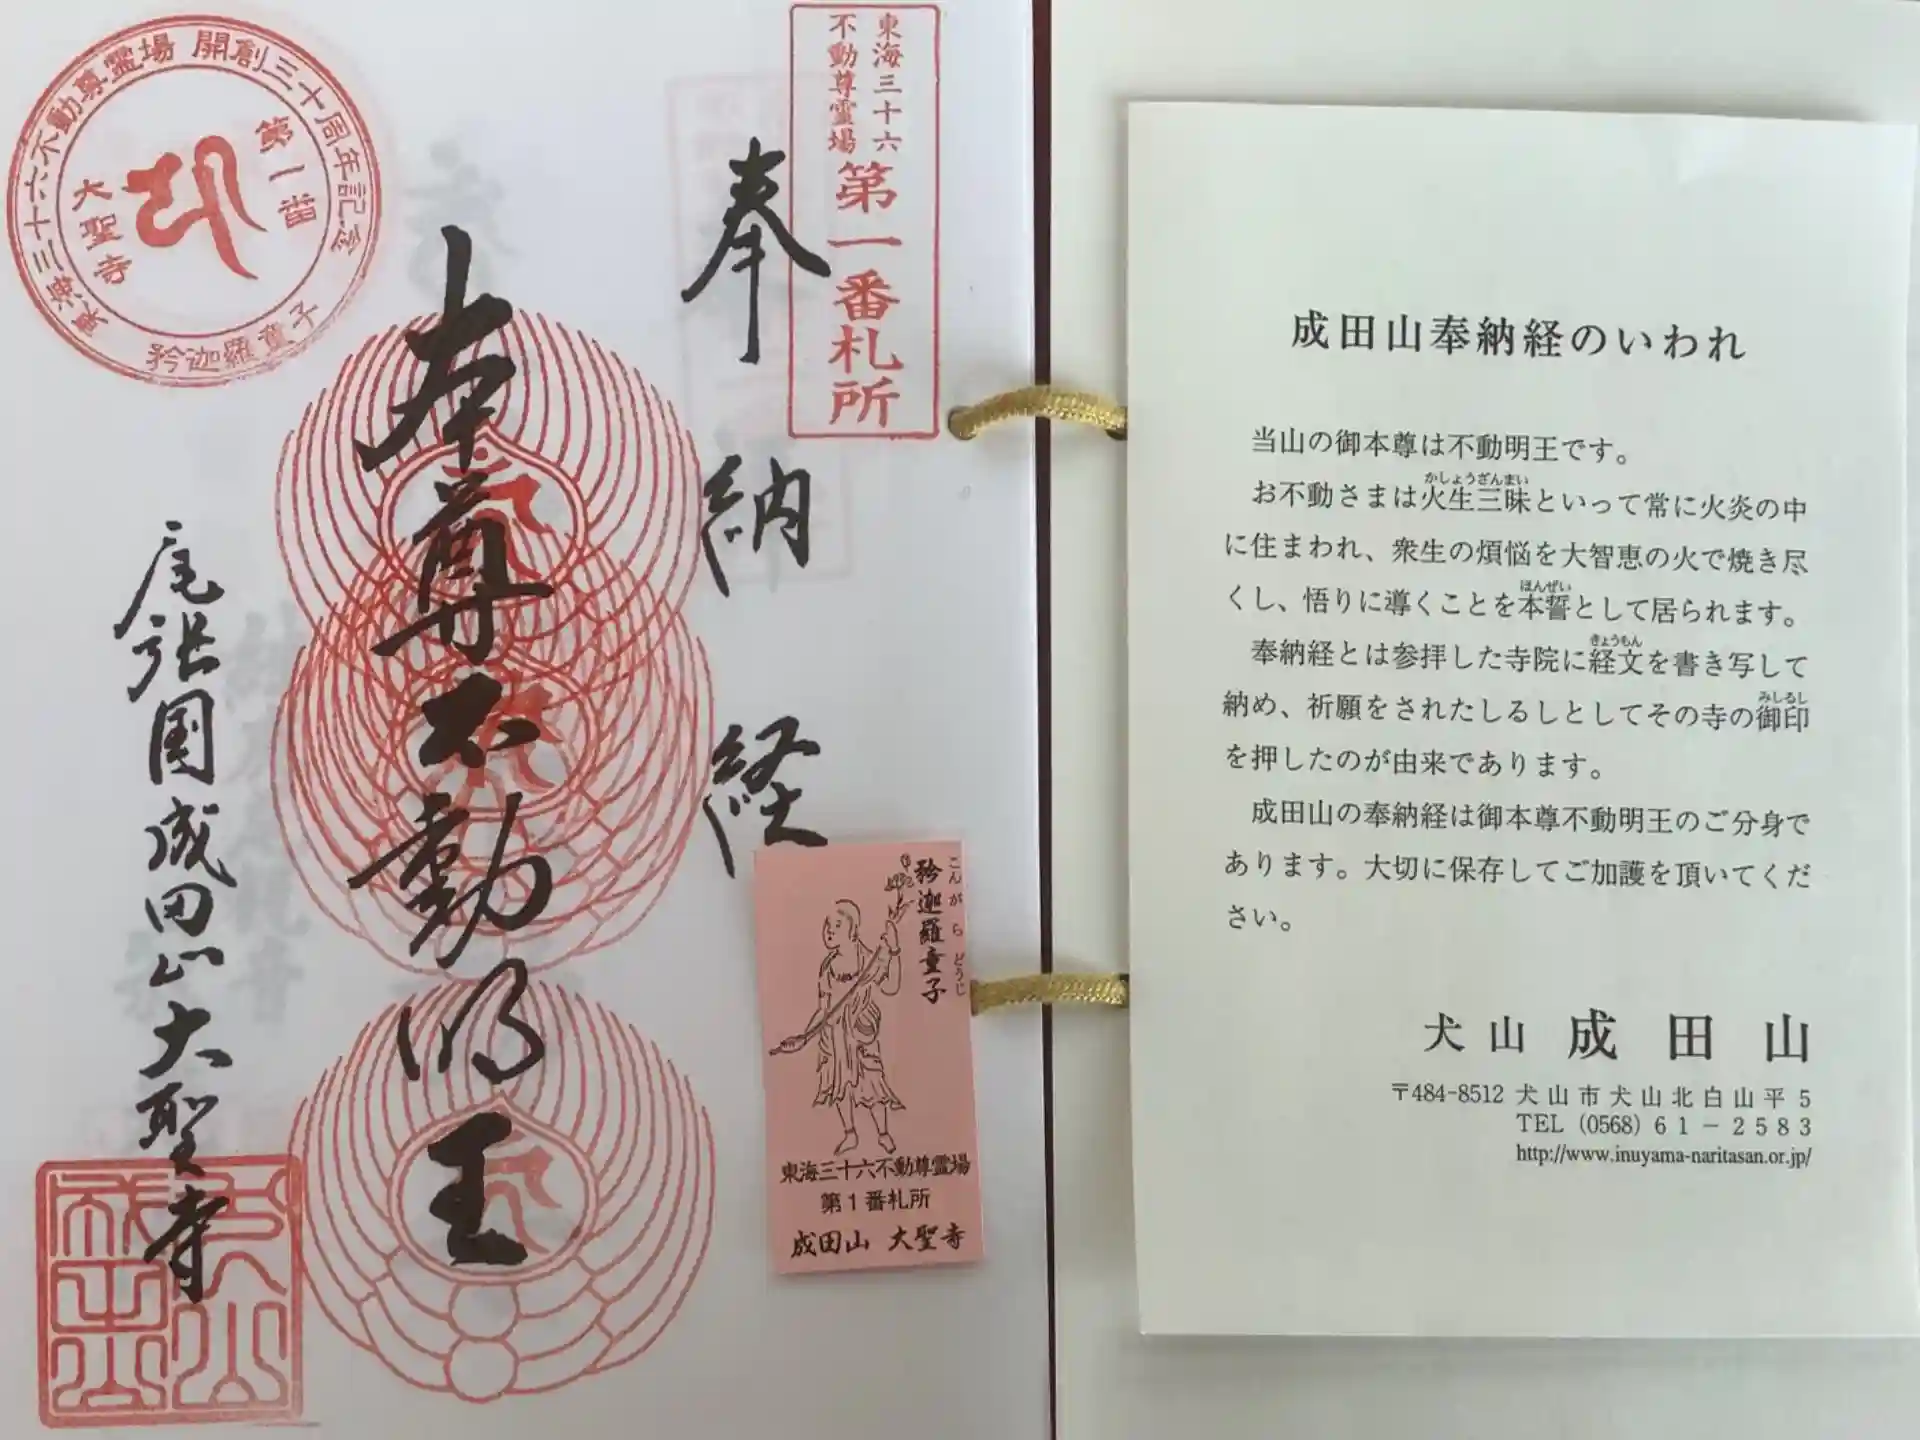 東海三十六
不動尊霊場
第一番札所
奉納経
本尊不動明王
尾張国成田山大聖寺
東海三十六不動尊霊場 開創三十周年記念
矜迦羅童子
第一番
大聖寺
矜迦羅童子
こんがらどうじ
東海三十六不動尊霊場
第1番札所
成田山 大聖寺
成田山奉納経のいわれ
当山の御本尊は不動明王です。
かしょうざんまい
お不動さまは火生三昧といって常に火炎の中
に住まわれ、衆生の煩悩を大智恵の火で焼き尽
ほんぜい
くし、悟りに導くことを本誓として居られます。
きょうもん
奉納経とは参拝した寺院に経文を書き写して
みしるし
納め、祈願をされたしるしとしてその寺の御印
を押したのが由来であります。
成田山の奉納経は御本尊不動明王のご分身で
あります。大切に保存してご加護を頂いてくだ
さい。
犬山 成田山
〒484-8512 犬山市犬山北白山平5
TEL (0568) 61-2583
http://www.inuyama-naritasan.or.jp/